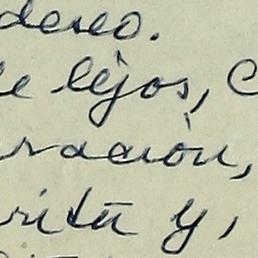 deseo.
le lejos, C
ración,
rita y,